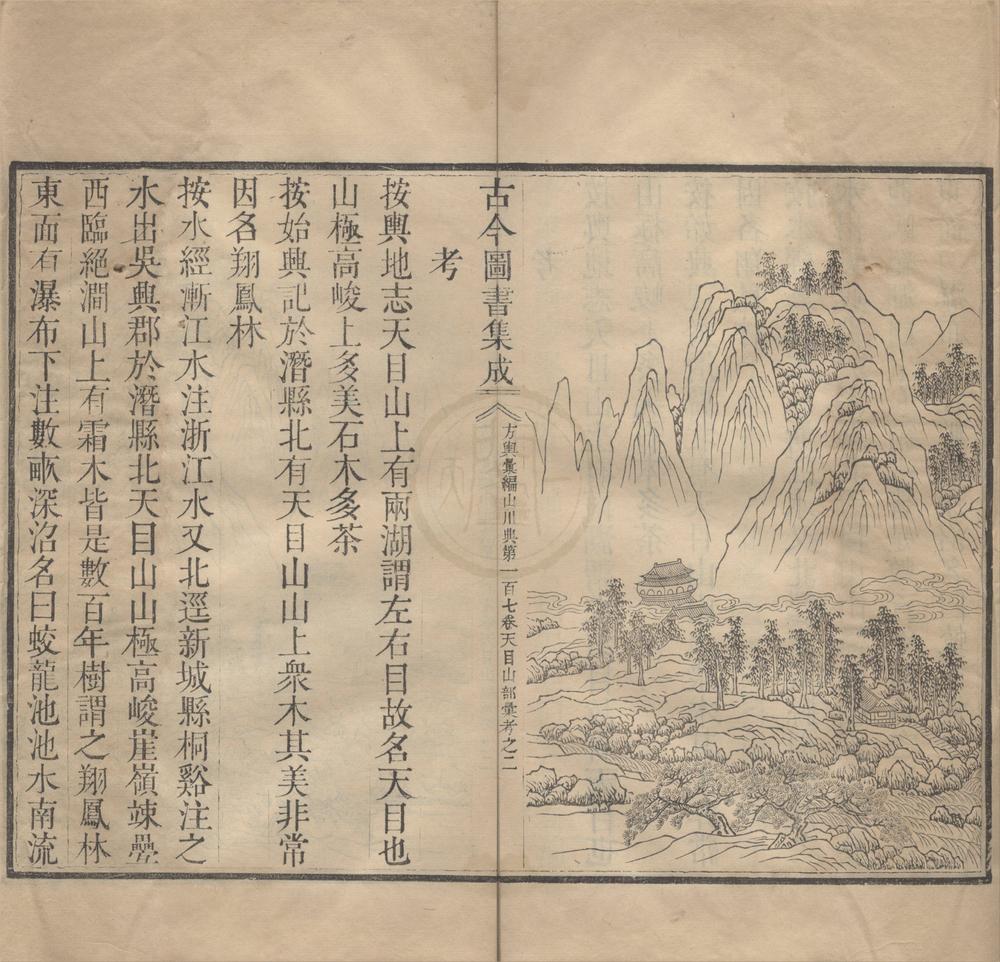 古今圖書集成
方輿彙編山川典第一百七卷天目山部彙考之二
考
按輿地志天目山上有兩湖謂左右目故名天目也
山極高峻上多美石木多茶
按始興記於潛縣北有天目山山上衆木其美非常
因名翔鳳林
按水經漸江水注浙江水又北逕新城縣桐谿注之
水出吳興郡於潛縣北天目山山極高峻崖嶺竦疊
西臨絕澗山上有霜木皆是數百年樹謂之翔鳳林
東面有瀑布下注數畝深沼名曰蛟龍池池水南流